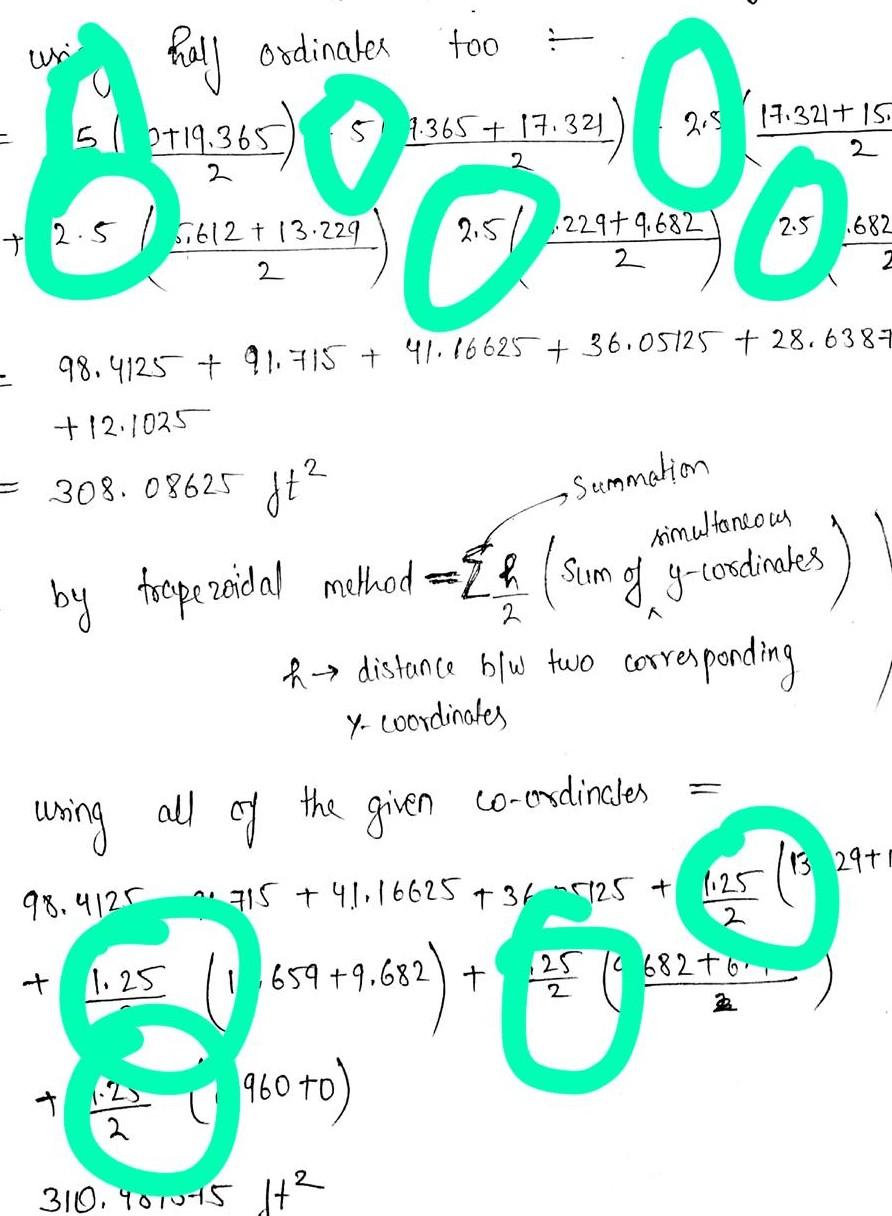 using half ordinates too :-
= 5 ( 0+19.365 / 2 ) 5 9.365 + 17.321 / 2 ) 2.5 ( 17.321+15. / 2
+ 2.5 ( 5.612 + 13.229 / 2 ) 2.5 ( .229+9.682 / 2 ) 2.5 .682 / 2
= 98.4125 + 91.715 + 41.16625 + 36.05125 + 28.6387
+12.1025
= 308.08625 ft²
Summation
by trapezoidal method = Σ h/2 ( Sum of ^ simultaneous y-cordinates )
h → distance b/w two corresponding
y-coordinates
using all of the given co-ordinates =
98.4125 .715 + 41.16625 + 36. 5125 + 1.25/2 (13. 29+1
+ 1.25 (1 .659+9.682) + .25/2 ( 682+6. )
+ 1.25/2 ( 960+0)
310. ft²